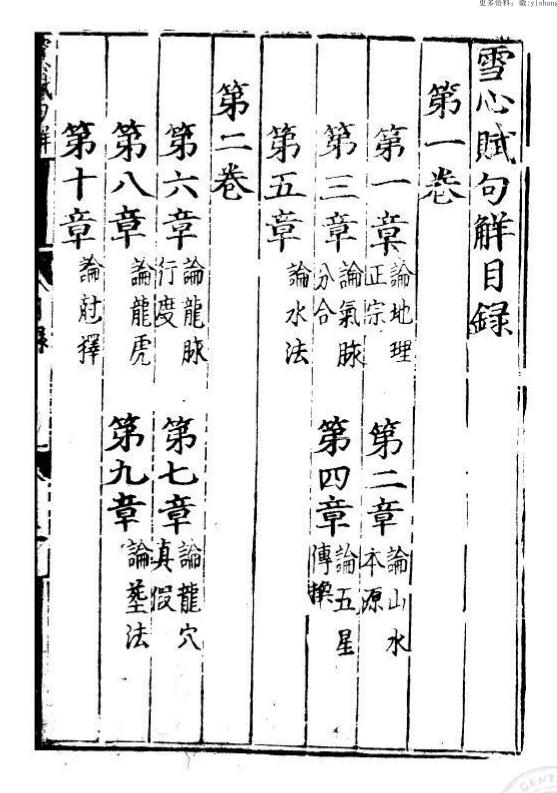 更多资料：微:yishang
雪心賦句解目録
第一卷
第一章 論地理正宗 第二章 論山水本源
第三章 論氣脉分合 第四章 論五星傳變
第五章 論水法
第二卷
第六章 論龍脉行度 第七章 論龍穴真假
第八章 論龍虎 第九章 論塟法
第十章 論尅擇
雪心賦句解
目録